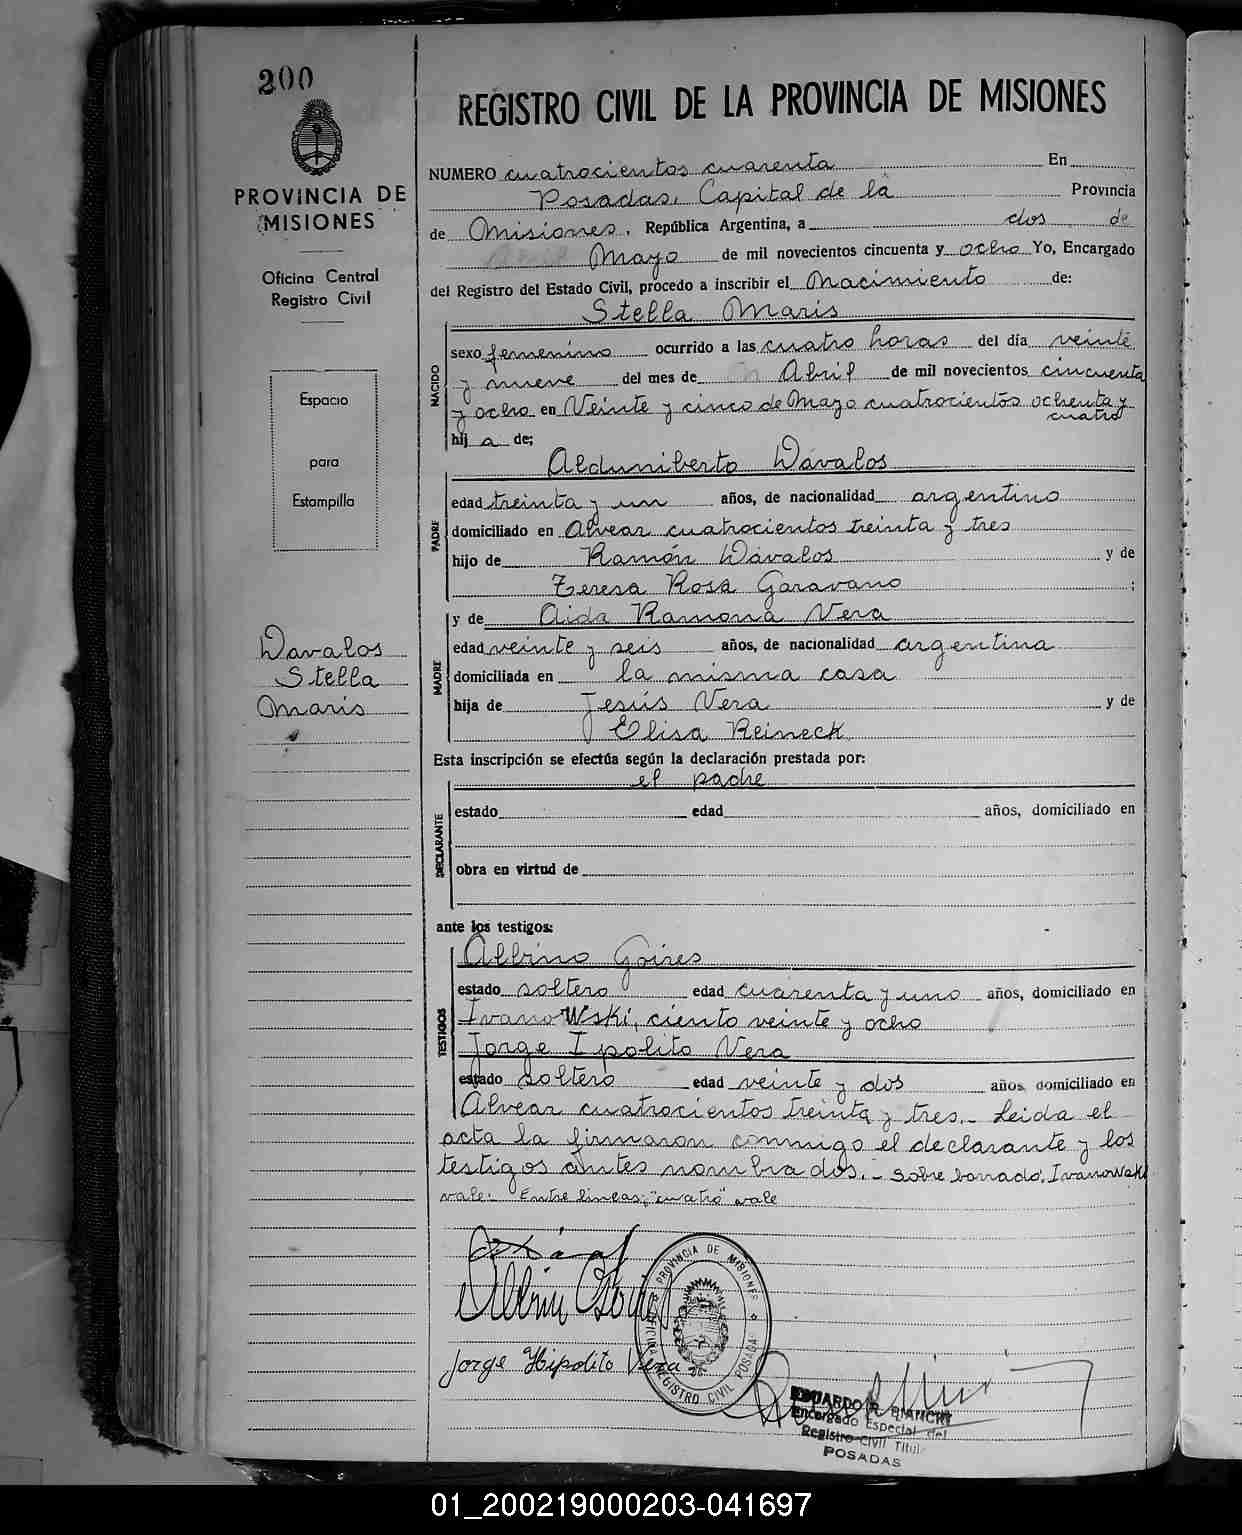 200
PROVINCIA DE
MISIONES
Oficina Central
Registro Civil
Espacio
para
Estampilla
Davalos
Stella
Maris
REGISTRO CIVIL DE LA PROVINCIA DE MISIONES
NUMERO cuatrocientos cuarenta En
Posadas, Capital de la Provincia
de Misiones, República Argentina, a dos de
Mayo de mil novecientos cincuenta y ocho Yo, Encargado
del Registro del Estado Civil, procedo a inscribir el Nacimiento de:
Stella Maris
NACIDO
sexo femenino ocurrido a las cuatro horas del día veinte
y nueve del mes de Abril de mil novecientos cincuenta
y ocho en Veinte y cinco de Mayo cuatrocientos ochenta y
cuatro
hij a de;
Aldumiberto Dávalos
PADRE
edad treinta y un años, de nacionalidad argentino
domiciliado en Alvear cuatrocientos treinta y tres
hijo de Ramón Dávalos y de
Teresa Rosa Garavano ;
y de Aida Ramona Vera
MADRE
edad veinte y seis años, de nacionalidad argentina
domiciliada en la misma casa
hija de Jesús Vera y de
Elisa Reineck
Esta inscripción se efectúa según la declaración prestada por:
el padre
DECLARANTE
estado edad años, domiciliado en
obra en virtud de
ante los testigos:
TESTIGOS
Albino Goires
estado soltero edad cuarenta y uno años, domiciliado en
IvanoWski, ciento veinte y ocho
Jorge Ipolito Vera
estado soltero edad veinte y dos años, domiciliado en
Alvear cuatrocientos treinta y tres.- Leida el
acta la firmaron conmigo el declarante y los
testigos antes nombrados.- Sobre borrado: Ivanowski
vale: Entre lineas; "cuatro" vale
Albin
Jorge Hipolito Vera
PROVINCIA DE MISIONES
OFICINA REGISTRO CIVIL POSADAS
EDUARDO R. BIANCHI
Encargado Especial del
Registro Civil Titular
POSADAS
01_200219000203-041697